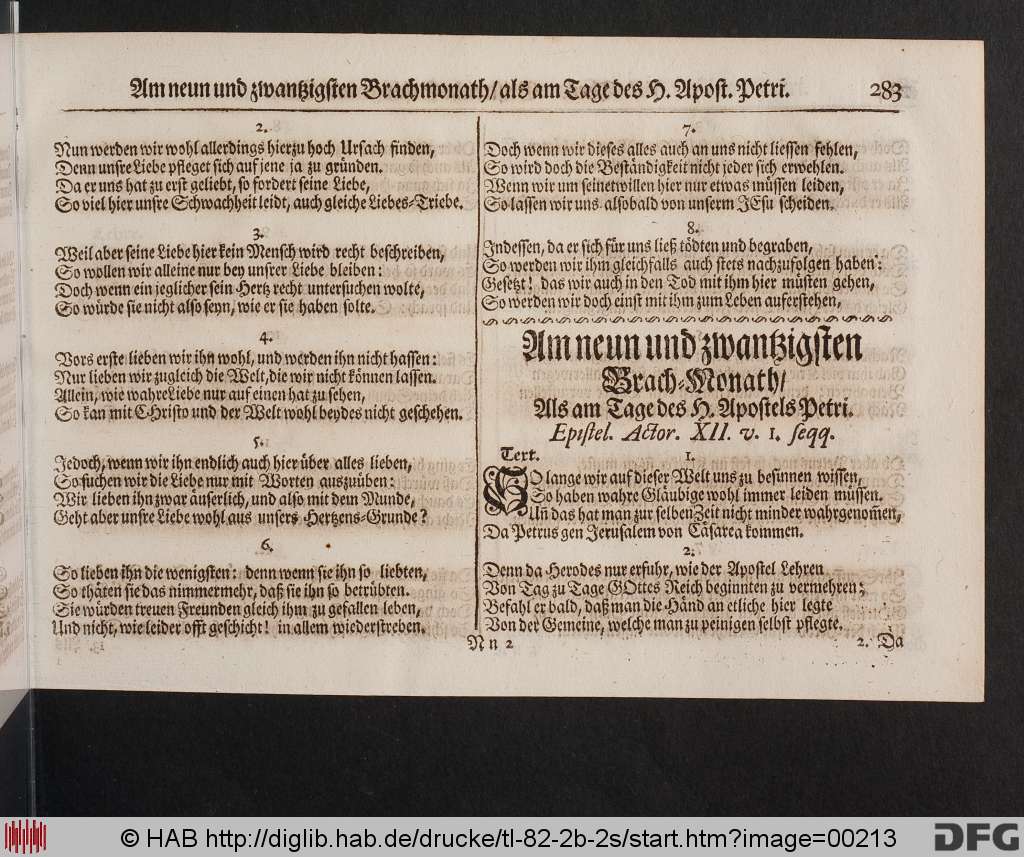 Am neun und zwantzigsten Brachmonath/ als am Tage des H. Apost. Petri. 283
2.
Nun werden wir wohl allerdings hierzu hoch Ursach finden,
Denn unsre Liebe pfleget sich auf jene ja zu gründen.
Da er uns hat zu erst geliebt, so fordert seine Liebe,
So viel hier unsre Schwachheit leidt, auch gleiche Liebes-Triebe.
3.
Weil aber seine Liebe hier kein Mensch wird recht beschreiben,
So wollen wir alleine nur bey unsrer Liebe bleiben:
Doch wenn ein jeglicher sein Hertz recht untersuchen wolte,
So würde sie nicht also seyn, wie er sie haben solte.
4.
Vors erste lieben wir ihn wohl, und werden ihn nicht hassen:
Nur lieben wir zugleich die Welt, die wir nicht können lassen.
Allein, wie wahre Liebe nur auf einen hat zu sehen,
So kan mit Christo und der Welt wohl beydes nicht geschehen.
5.
Jedoch, wenn wir ihn endlich auch hier über alles lieben,
So suchen wir die Liebe nur mit Worten auszuüben:
Wir lieben ihn zwar äuserlich, und also mit dem Munde,
Geht aber unsre Liebe wohl aus unsers Hertzens-Grunde?
6.
So lieben ihn die wenigsten: denn wenn sie ihn so liebten,
So thäten sie das nimmermehr, daß sie ihn so betrübten.
Sie würden treuen Freunden gleich ihm zu gefallen leben,
Und nicht, wie leider offt geschicht! in allem wiederstreben.
7.
Doch wenn wir dieses alles auch an uns nicht liessen fehlen,
So wird doch die Beständigkeit nicht jeder sich erwehlen.
Wenn wir um seinetwillen hier nur etwas müssen leiden,
So lassen wir uns alsobald von unserm JEsu scheiden.
8.
Indessen, da er sich für uns ließ tödten und begraben,
So werden wir ihn gleichfalls auch stets nachzufolgen haben:
Gesetzt! das wir auch in den Tod mit ihm hier müsten gehen,
So werden wir doch einst mit ihm zum Leben auferstehen,
Am neun und zwantzigsten
Brach-Monath/
Als am Tage des H. Apostels Petri.
Epistel. Actor. XII. v. 1. seqq.
Tert. 1.
SO lange wir auf dieser Welt uns zu besinnen wissen,
So haben wahre Gläubige wohl immer leiden müssen.
Uñ das hat man zur selben Zeit nicht minder wahrgenom̃en,
Da Petrus gen Jerusalem von Cäsarea kommen.
2.
Denn da Herodes nur erfuhr, wie der Apostel Lehren
Von Tag zu Tage GOttes Reich beginnten zu vermehren;
Befahl er bald, daß man die Händ an etliche hier legte
Von der Gemeine, welche man zu peinigen selbst pflegte.
N n 2 2. Da
© HAB http://diglib.hab.de/drucke/tl-82-2b-2s/start.htm?image=00213
DFG